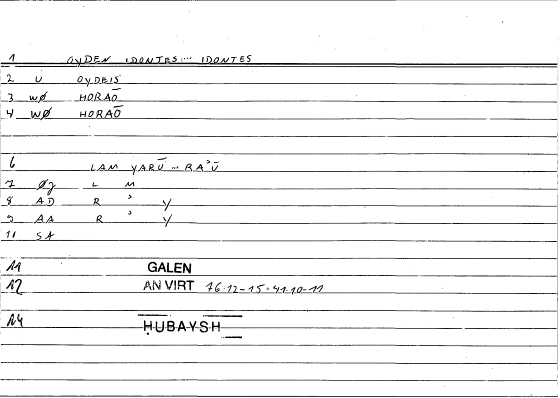 1 OYDEN IDONTES... IDONTES
2 U OYDEIS
3 WØ HORAŌ
4 WØ HORAŌ
6 LAM YARŪ ... RAʾŪ
7 ØJ L M
8 AD R ʾ Y
9 AA R ʾ Y
11 SA
11 GALEN
12 AN VIRT 76.12-15
14 ḤUBAYSH